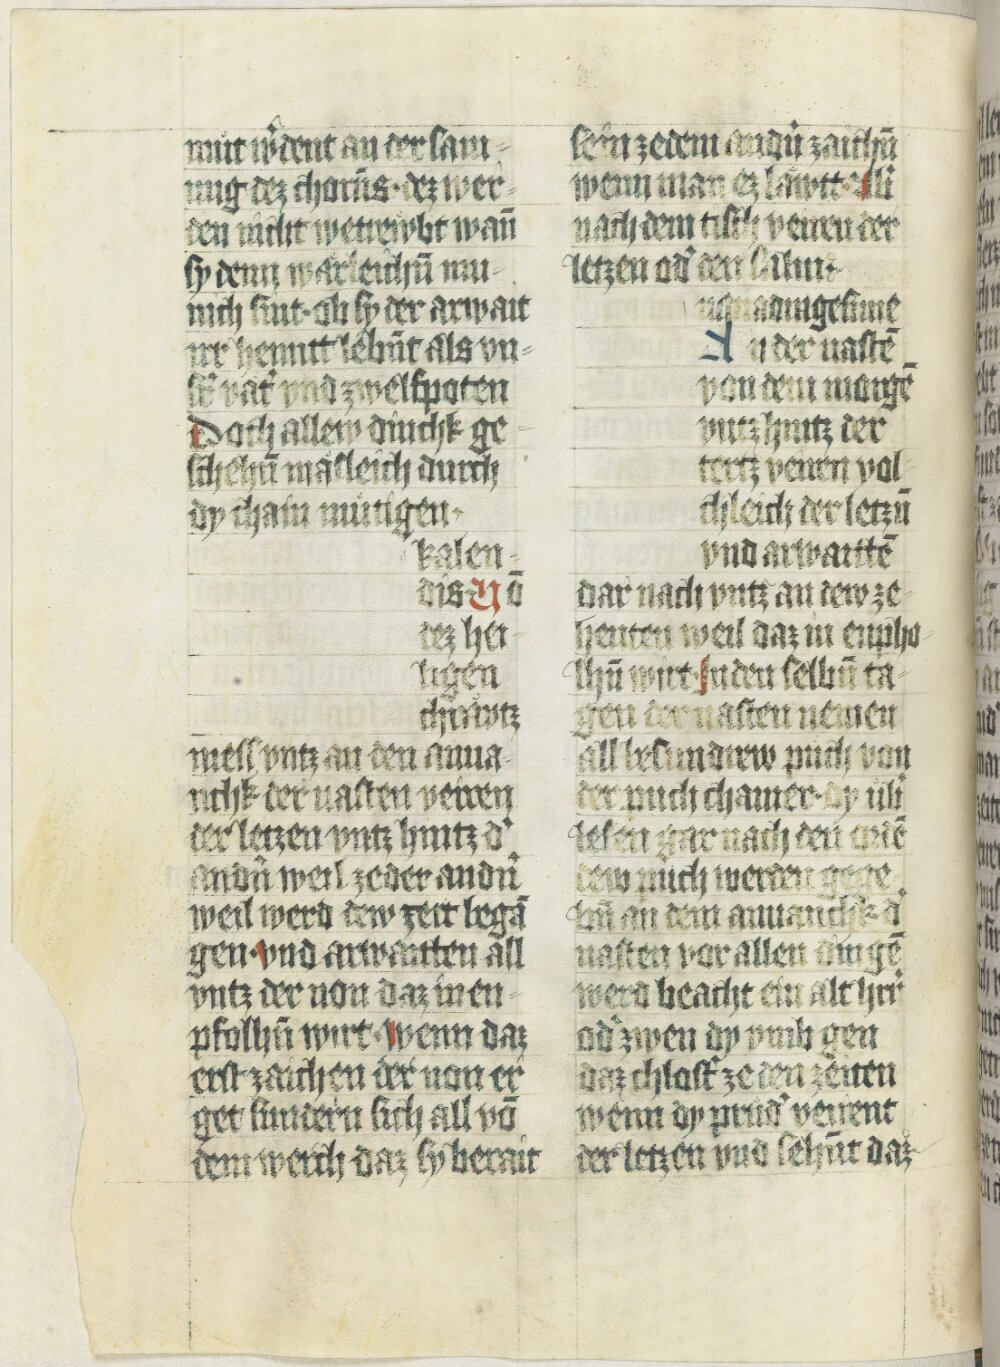 müt wͦdent an der sam-
nug dez chorn̄s· dez wer-
den nicht wetrewbt wan̄
sy denn wärleichn̄ mu-
nich sint· ob sy der arwait
irr henntt lebn̄t als vn-
sr̄ vatʾ vnd zwelfpoten
Doch allew dinchk ge-
schehn̄ mäsleich durch
dy chain mütigen·
kalen-
dis· Uō
dez hei-
ligen
chräwtz
mess vntz an den anua-
nchk der uasten veiren
der letzen vntz hintz dʾ
andn̄ weil ze der andn̄
weil werd dew zeit begā
gen· vnd arwaitten all
vntz der non daz in en-
pfolhn̄ wirt· Wenn daz
erst zaichen der non er
get sundern sich all vō
dem werch daz sy berait
sein ze dem andn̄ zaichn̄
wenn man ez läwtt·
nach dem tisch veiren der
letzen odʾ den salm·
n quadragesime
An der uastē
von dem morgē
vntz hintz der
tertz veiren vol-
chleich der letzn̄
vnd arwaittē
dar nach vntz an dew ze-
henten weil daz in enpho-
lhn̄ wirt· In den selbn̄ ta-
gen der uasten nemen
all besundrew püch von
der püch chamer· dy üli
lesen gar nach den ordē
dew püch werden gege-
bn̄ an dem anuanchk dʾ
uasten vor allen dingē
werd beacht ein alt hrr̄
odʾ zwen dy vmb gen
daz chlostʾ ze den zeiten
wenn dy prudʾ veirent
der letzen vnd sehn̄t daz